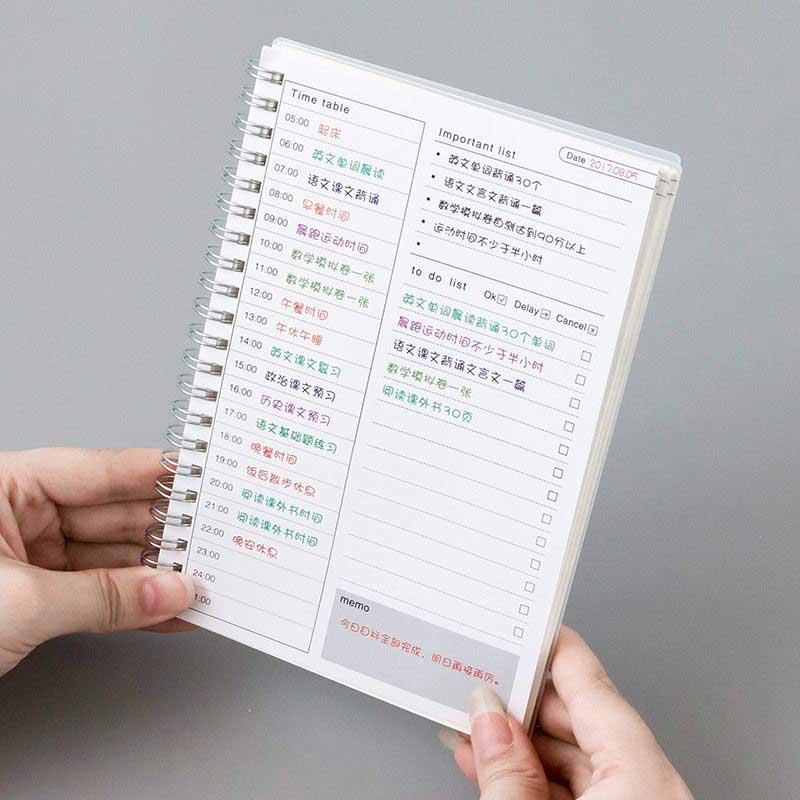 Time table
05:00 起床
06:00 英文单词晨读
07:00 语文课文背诵
08:00 早餐时间
09:00 晨跑运动时间
10:00 数学模拟卷一张
11:00 数学模拟卷一张
12:00 午餐时间
13:00 午休午睡
14:00 英文课文复习
15:00 政治课文预习
16:00 历史课文预习
17:00 语文基础题练习
18:00 晚餐时间
19:00 饭后散步休息
20:00 阅读课外书时间
21:00 阅读课外书时间
22:00 晚安休息
23:00
24:00
1:00
Important list
Date 2017.08.05
• 英文单词背诵30个
• 语文文言文背诵一篇
• 数学模拟卷自测达到90分以上
• 运动时间不少于半小时
•
to do list Ok Delay Cancel
英文单词晨读背诵30个单词
晨跑运动时间不少于半小时
语文课文背诵文言文一篇
数学模拟卷一张
阅读课外书30页
memo
今日目标全部完成，明日再接再厉。